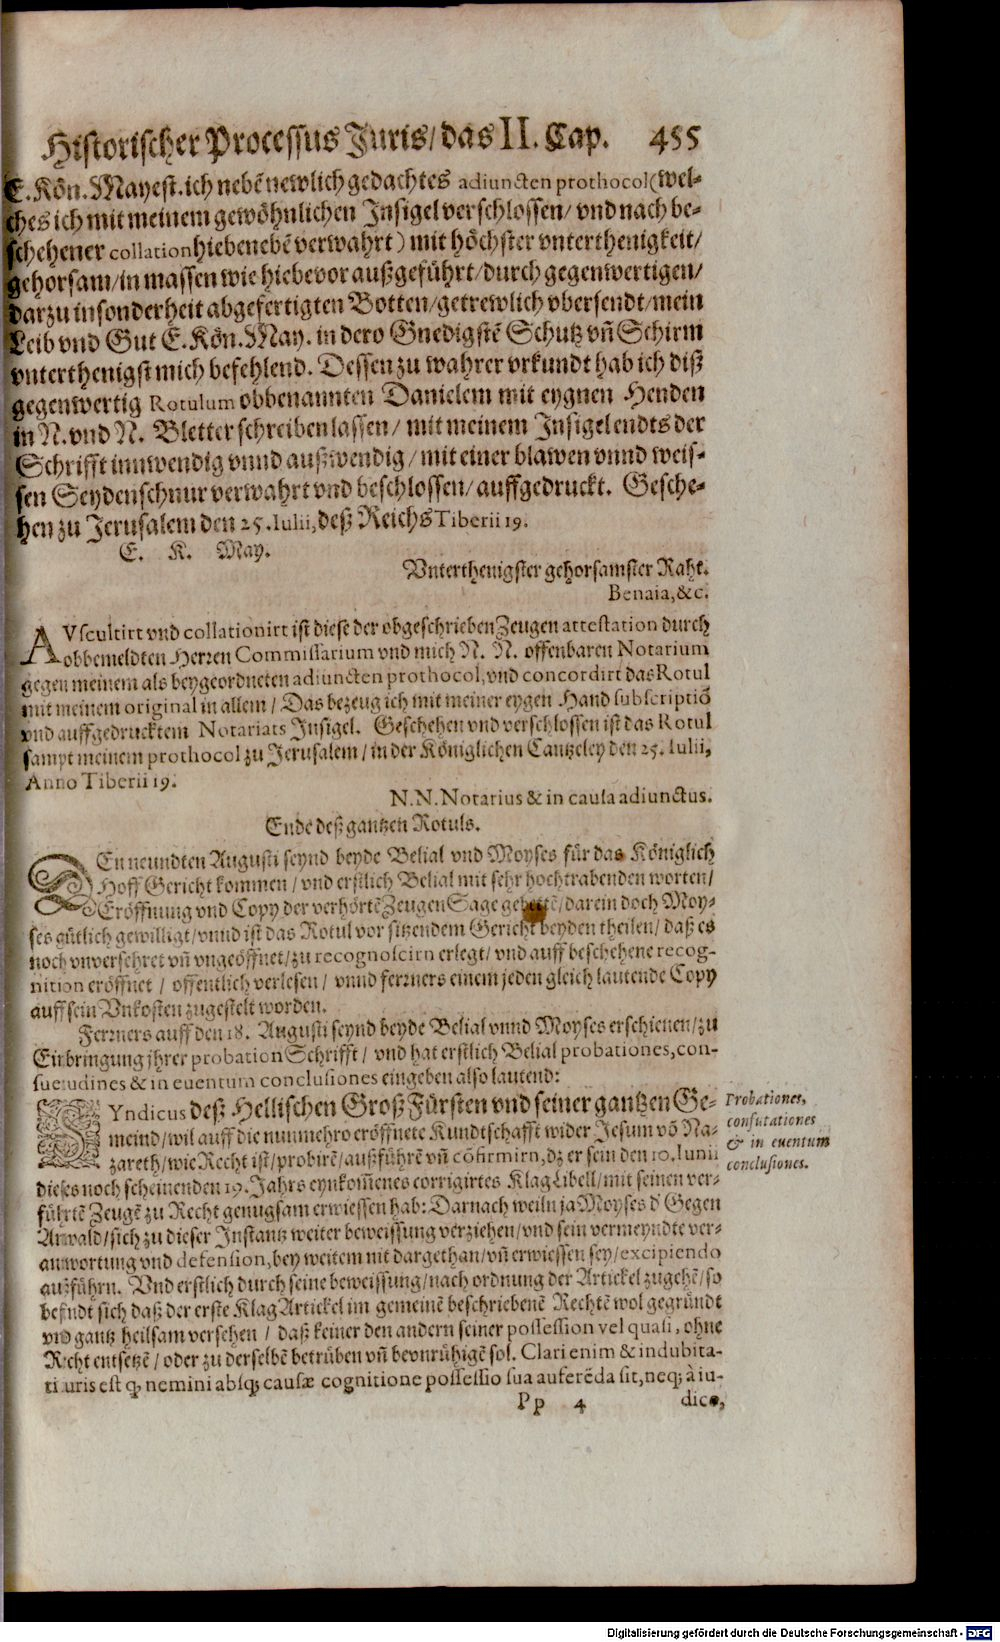 Historischer Processus Juris/ das II. Cap. 455
E. Kön. Mayest. ich nebẽ newlich gedachtes adiuncten prothocol (wel-
ches ich mit meinem gewöhnlichen Insigel verschlossen/ vnd nach be-
schehener collation hiebenebẽ verwahrt) mit höchster vnterthenigkeit/
gehorsam/ in massen wie hiebevor außgeführt/ durch gegenwertigen/
darzu insonderheit abgefertigten Botten/ getrewlich vbersendt/ mein
Leib vnd Gut E. Kön. May. in dero Gnedigstẽ Schutz vñ Schirm
vnterthenigst mich befehlend. Dessen zu wahrer vrkundt hab ich diß
gegenwertig Rotulum obbenannten Danielem mit eygnen Henden
in N. vnd N. Bletter schreiben lassen/ mit meinem Insigel endts der
Schrifft innwendig vnnd außwendig/ mit einer blawen vnnd weis-
sen Seydenschnur verwahrt vnd beschlossen/ auffgedruckt. Gesche-
hen zu Jerusalem den 25. Iulii, deß Reichs Tiberii 19.
E. K. May.
Vnterthenigster gehorsamster Raht.
Benaia, &c.
AVscultirt vnd collationirt ist diese der obgeschrieben Zeugen attestation durch
obbemeldten Herren Commissarium vnd mich N. N. offenbaren Notarium
gegen meinem als beygeordneten adiuncten prothocol, vnd concordirt das Rotul
mit meinem original in allem/ Das bezeug ich mit meiner eygen Hand subscriptiõ
vnd auffgedrucktem Notariats Insigel. Geschehen vnd verschlossen ist das Rotul
sampt meinem prothocol zu Jerusalem/ in der Königlichen Cantzeley den 25. Iulii,
Anno Tiberii 19.
N. N. Notarius & in causa adiunctus.
Ende deß gantzen Rotuls.
DEn neundten Augusti seynd beyde Belial vnd Moyses für das Königlich
Hoff Gericht kommen/ vnd erstlich Belial mit sehr hochtrabenden worten/
Eröffnung vnd Copy der verhörtẽ Zeugen Sage gebettẽ/ darein doch Moy-
ses gütlich gewilligt/ vnnd ist das Rotul vor sitzendem Gericht beyden theilen/ daß es
noch vnversehret vñ vngeöffnet/ zu recognoscirn erlegt/ vnd auff beschehene recog-
nition eröffnet/ offentlich verlesen/ vnnd ferrners einem jeden gleich lautende Copy
auff sein Vnkosten zugestelt worden.
Ferrners auff den 18. Augusti seynd beyde Belial vnnd Moyses erschienen/ zu
Einbringung jhrer probation Schrifft/ vnd hat erstlich Belial probationes, con-
suetudines & in euentum conclusiones eingeben also lautend:
SYndicus deß Hellischen Groß Fürsten vnd seiner gantzen Ge-
meind/ wil auff die nunmehro eröffnete Kundtschafft wider Jesum võ Na-
zareth/ wie Recht ist/ probirẽ/ außführẽ vñ cõfirmirn, dz er sein den 10. Iunii
dieses noch scheinenden 19. Jahrs eynkom̃enes corrigirtes Klag Libell/ mit seinen ver-
führtẽ Zeugẽ zu Recht genugsam erwiessen hab: Darnach weiln ja Moyses d' Gegen
Anwald/ sich zu dieser Instantz weiter beweissung verziehen/ vnd sein vermeyndte ver-
antwortung vnd defension, bey weitem nit dargethan/ vñ erwiessen sey/ excipiendo
außführn. Vnd erstlich durch seine beweissung/ nach ordnung der Artickel zugehẽ/ so
befindt sich daß der erste Klag Artickel im gemeinẽ beschriebenẽ Rechtẽ wol gegründt
vnd gantz heilsam versehen/ daß keiner den andern seiner possession vel quasi, ohne
Recht entsetzẽ/ oder zu derselbẽ betrüben vñ bevnrühigẽ sol. Clari enim & indubita-
ti iuris est q; nemini absq; causæ cognitione possessio sua auferẽda sit, neq; à iu-
Pp 4 dice,
Probationes,
confutationes
& in euentum
conclusiones.
Digitalisierung gefördert durch die Deutsche Forschungsgemeinschaft - DFG